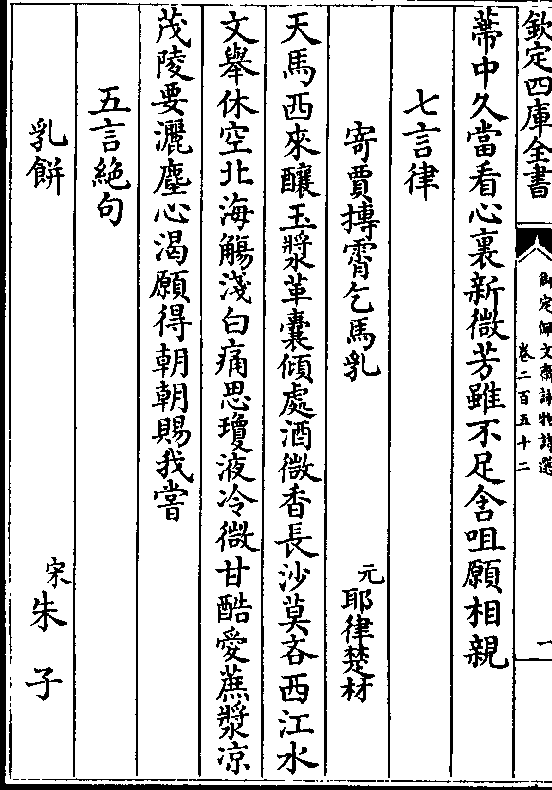 欽定四庫全書
御定佩文齋詠物詩選
卷二百五十二
一
蔕中久當看心裏新微芳雖不足含咀願相親
七言律
寄賈摶霄乞馬乳 元 耶律楚材
天馬西來釀玉漿革囊傾處酒微香長沙莫吝西江水
文舉休空北海觴淺白痛思瓊液冷微甘酷愛蔗漿凉
茂陵要灑塵心渴願得朝朝賜我嘗
五言絶句
乳餅 宋 朱子